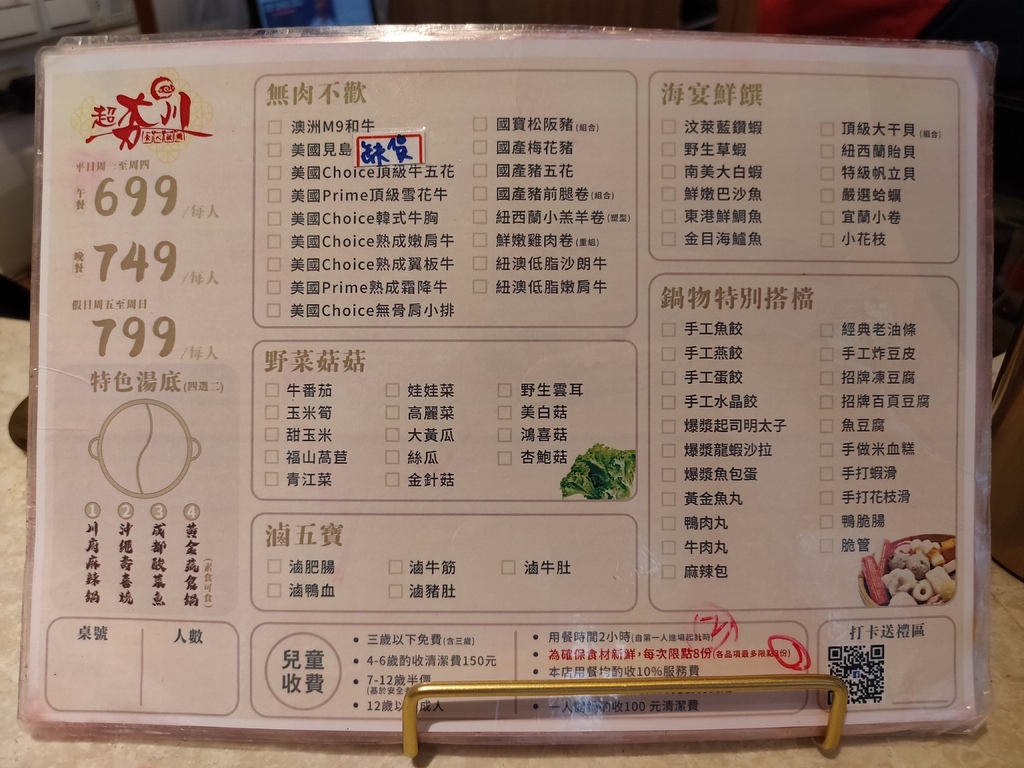 超夯川
平日周一至周四
午餐 699/每人
晚餐 749/每人
假日周五至周日
799/每人
特色湯底(四選二)
1 川府麻辣鍋
2 沖繩壽喜燒
3 成都酸菜魚
4 黃金蔬食鍋(素食可食)
桌號
人數
無肉不歡
澳洲M9和牛
美國見島
缺貨
美國Choice頂級牛五花
美國Prime頂級雪花牛
美國Choice韓式牛胸
美國Choice熟成嫩肩牛
美國Choice熟成翼板牛
美國Prime熟成霜降牛
美國Choice無骨肩小排
國寶松阪豬(組合)
國產梅花豬
國產豬五花
國產豬前腿卷(組合)
紐西蘭小羔羊卷(塑型)
鮮嫩雞肉卷(重組)
紐澳低脂沙朗牛
紐澳低脂嫩肩牛
野菜菇菇
牛番茄
玉米筍
甜玉米
福山萵苣
青江菜
娃娃菜
高麗菜
大黃瓜
絲瓜
金針菇
野生雲耳
美白菇
鴻喜菇
杏鮑菇
滷五寶
滷肥腸
滷鴨血
滷牛筋
滷豬肚
滷牛肚
海宴鮮饌
汶萊藍鑽蝦
野生草蝦
南美大白蝦
鮮嫩巴沙魚
東港鮮鯛魚
金目海鱸魚
頂級大干貝(組合)
紐西蘭貽貝
特級帆立貝
嚴選蛤蠣
宜蘭小卷
小花枝
鍋物特別搭檔
手工魚餃
手工燕餃
手工蛋餃
手工水晶餃
爆漿起司明太子
爆漿龍蝦沙拉
爆漿魚包蛋
黃金魚丸
鴨肉丸
牛肉丸
麻辣包
經典老油條
手工炸豆皮
招牌凍豆腐
招牌百頁豆腐
魚豆腐
手做米血糕
手打蝦滑
手打花枝滑
鴨脆腸
脆管
兒童收費
• 三歲以下免費(含三歲)
• 4-6歲酌收清潔費150元
• 7-12歲半價
(基於安全
• 12歲 成人
• 用餐時間2小時(自第一人進場起計時)
• 為確保食材新鮮，每次限點8份(各品項最多限點 份)
• 本店用餐均酌收10%服務費
• 一人 酌收100 元清潔費
打卡送禮區